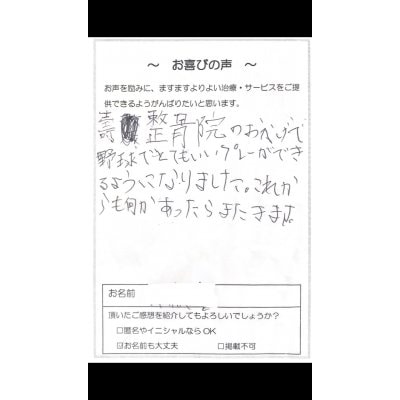 ～ お喜びの声 ～
お声を励みに、ますますよりよい治療・サービスをご提
供できるようがんばりたいと思います。
壽 整骨院のおかげで
野球でとてもいいプレーができ
るようになりました。これか
らも何かあったらまたきます。
お名前
頂いたご感想を紹介してもよろしいでしょうか？
□匿名やイニシャルなら OK
☑お名前も大丈夫 □掲載不可